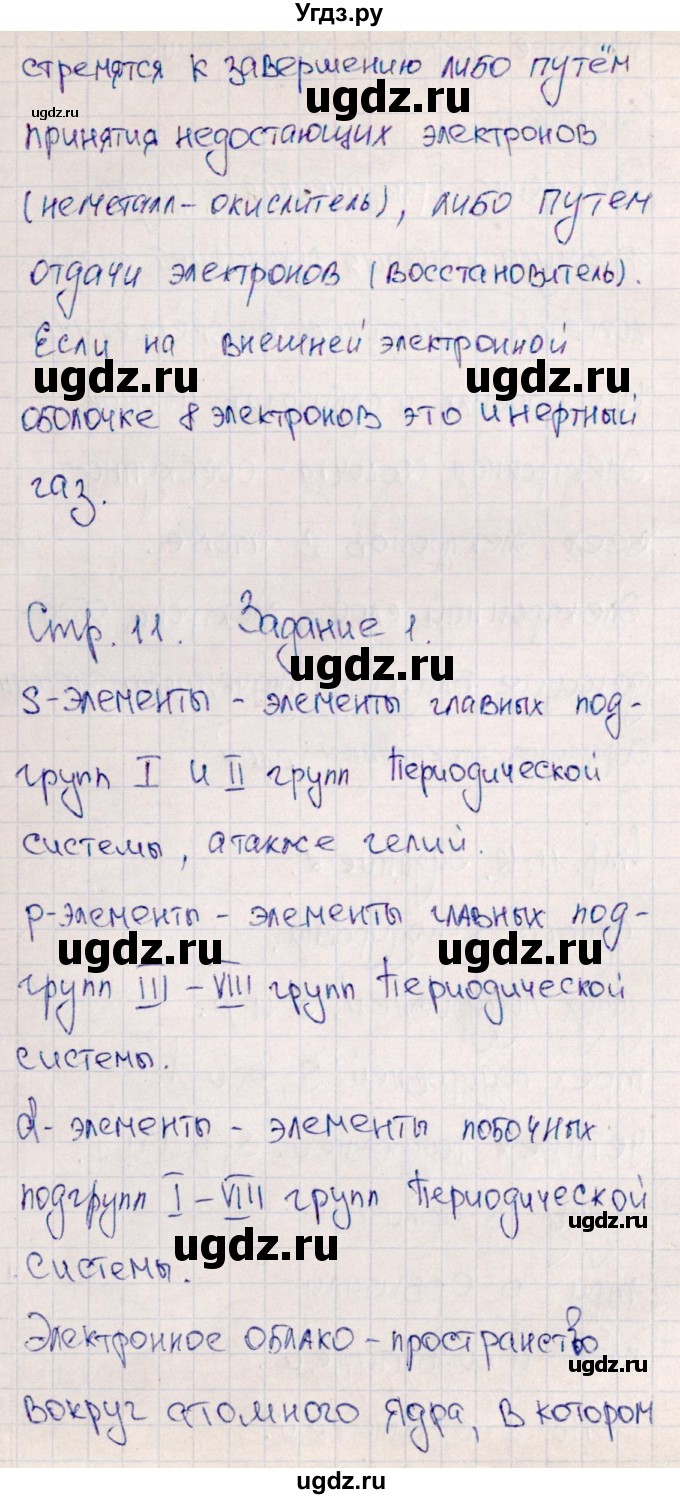 Угдз.ру
стремятся к завершению либо путём
ugdz.ru
ugdz.ru
принятия недостающих электронов
ugdz.ru
(неметалл - окислитель), либо путем
отдачи электронов (восстановитель).
Если на внешней электронной
ugdz.ru
ugdz.ru
оболочке 8 электронов это инертный
газ.
Стр. 11. Задание 1.
ugdz.ru
s-элементы - элементы главных под-
групп I и II групп Периодической
системы, атакже гелий.
p-элементы - элементы главных под-
ugdz.ru
ugdz.ru
групп III - VIII групп Периодической
системы.
d- элементы - элементы побочных
подгрупп I - VIII групп Периодической
ugdz.ru
ugdz.ru
системы.
Электронное облако - пространство
ugdz.ru
вокруг атомного ядра, в котором
ugdz.ru